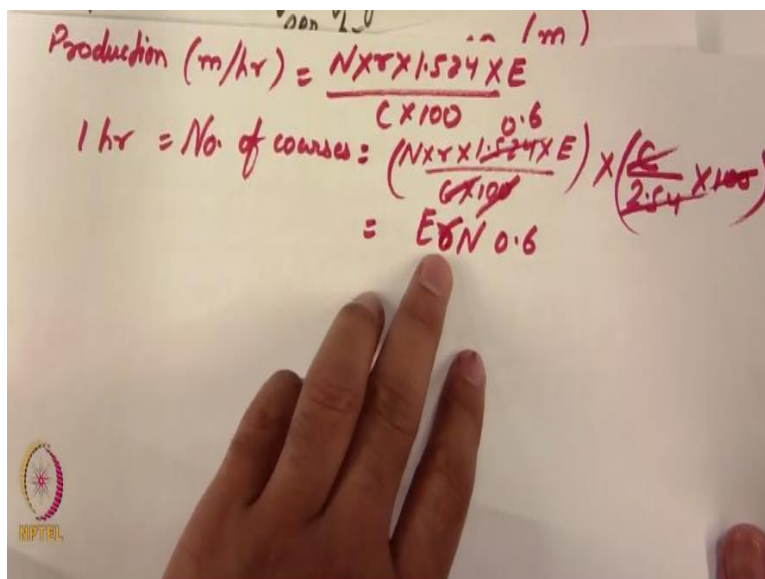 (m)
Production (m/hr) = N×r×1.524×E
C×100
0.6
1 hr = No. of courses = (N×r×1.524×E / C×100) × (C / 2.54 ×100)
= ErN 0.6
NPTEL